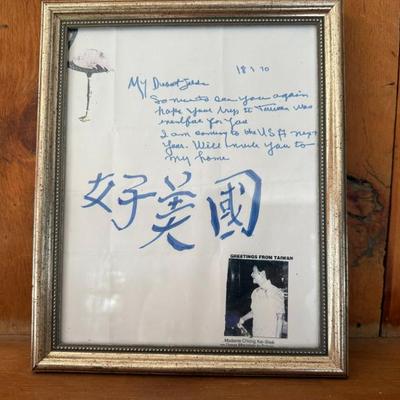 18 1 70
My Dearest
So nice to see you again
hope your trip to Taiwan was
for you
I am coming to the USA next
year. Will invite you to
my home
好美國
GREETINGS FROM TAIWAN
Madame Chiang Kai-Shek